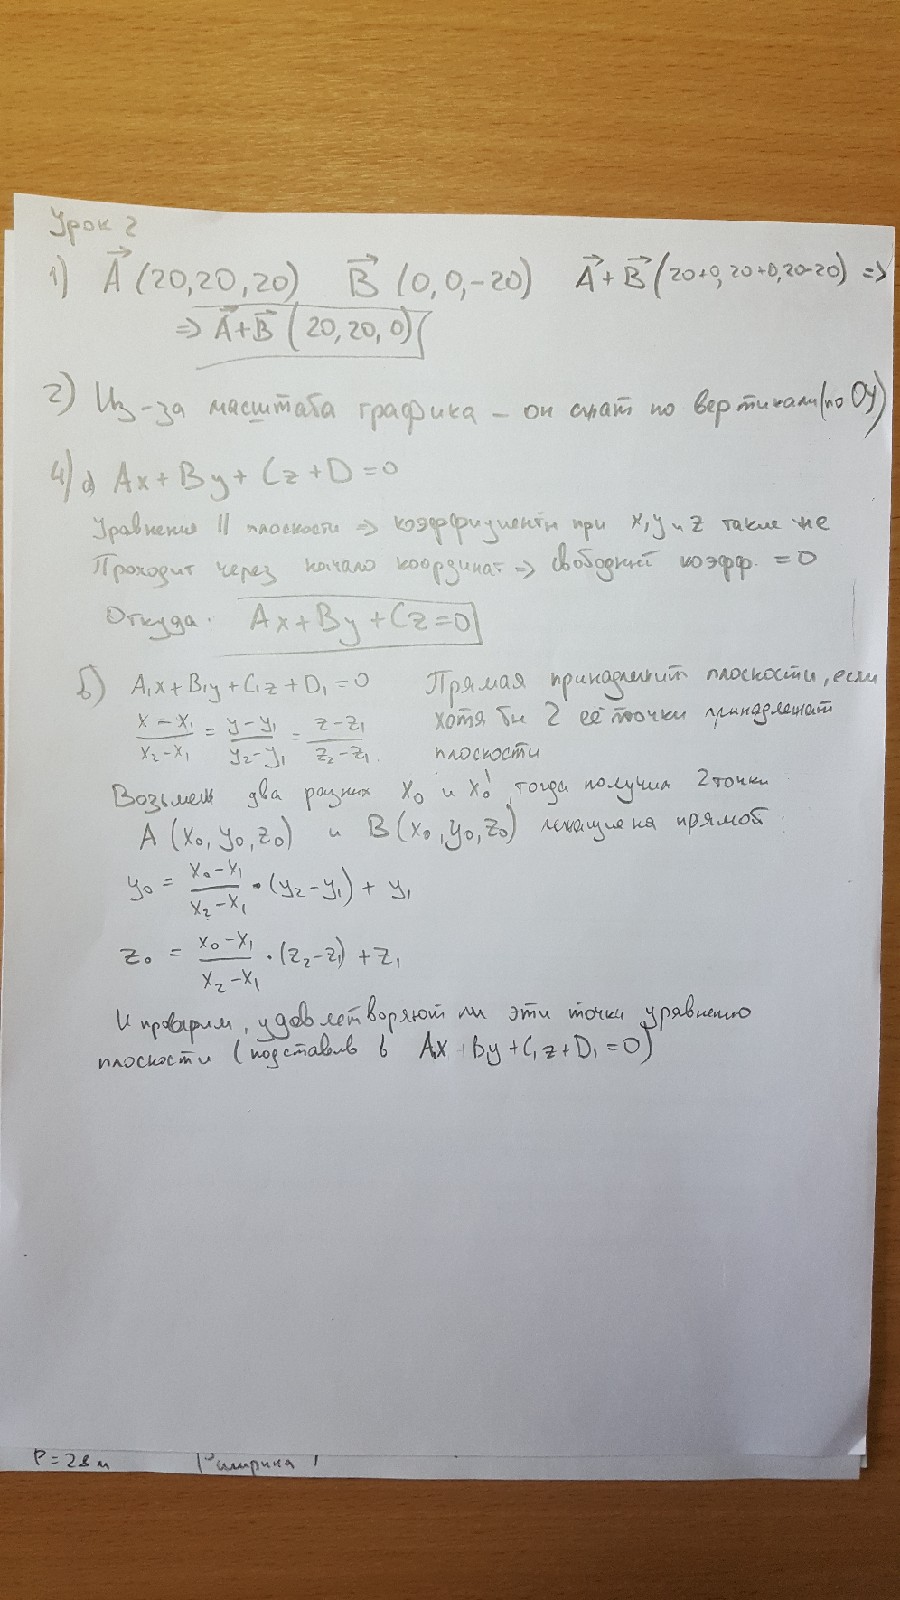 Урок 2
1) A (20,20,20) B (0,0,-20) A+B (20+0, 20+0, 20-20) =>
=> A+B (20, 20, 0)
2) Из-за масштаба графика - он сжат по вертикали (по OY)
4) a) Ax + By + Cz + D = 0
Уравнения || плоскости => коэффициенты при x, y и z такие же
Проходит через начало координат => свободный коэфф. = 0
Откуда. Ax + By + Cz = 0
б) A₁x + B₁y + C₁z + D₁ = 0 Прямая принадлежит плоскости, если
(x - x₁)/(x₂ - x₁) = (y - y₁)/(y₂ - y₁) = (z - z₁)/(z₂ - z₁). хотя бы 2 её точки принадлежат
плоскости
Возьмем два разных x₀ и x₀' тогда получим 2 точки
A (x₀, y₀, z₀) и B (x₀, y₀, z₀) лежащие на прямой
y₀ = (x₀ - x₁)/(x₂ - x₁) · (y₂ - y₁) + y₁
z₀ = (x₀ - x₁)/(x₂ - x₁) · (z₂ - z₁) + z₁
И проверим, удовлетворяют ли эти точки уравнению
плоскости (подставив в A₁x + B₁y + C₁z + D₁ = 0)